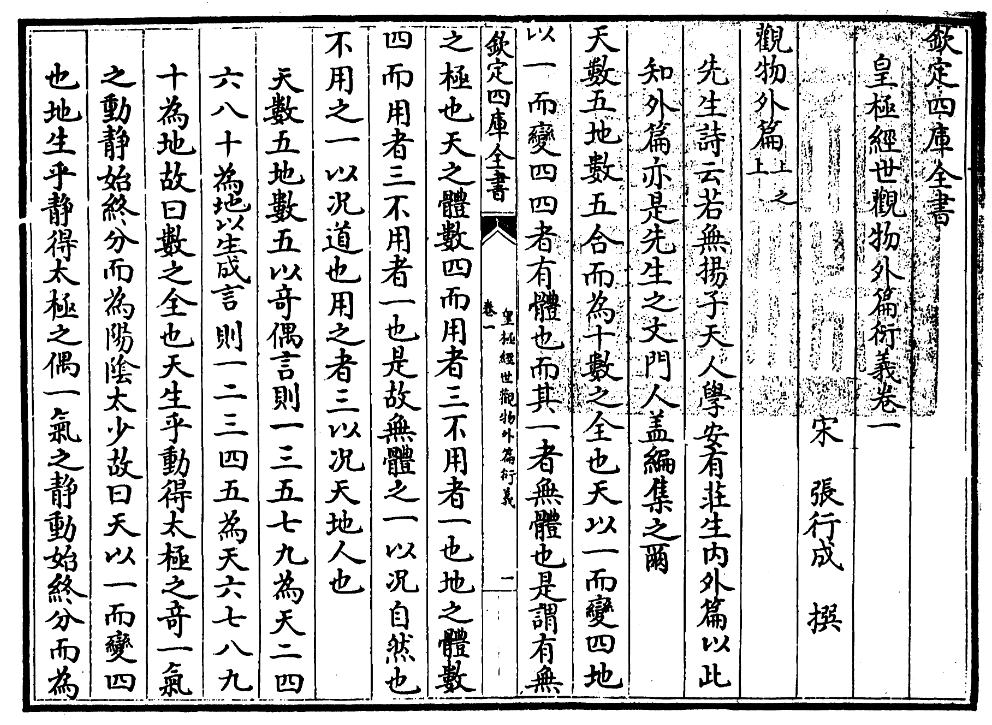 欽定四庫全書
皇極經世觀物外篇衍義卷一
宋 張行成 撰
觀物外篇上之上
先生詩云若無揚子天人學安有莊生内外篇以此
知外篇亦是先生之文門人盖編集之爾
天數五地數五合而為十數之全也天以一而變四地
以一而變四四者有體也而其一者無體也是謂有無
欽定四庫全書
皇極經世觀物外篇衍義
卷一
一
之極也天之體數四而用者三不用者一也地之體數
四而用者三不用者一也是故無體之一以况自然也
不用之一以况道也用之者三以况天地人也
天數五地數五以竒偶言則一三五七九為天二四
六八十為地以生成言則一二三四五為天六七八九
十為地故曰數之全也天生乎動得太極之竒一氣
之動靜始終分而為陽陰太少故曰天以一而變四
也地生乎静得太極之偶一氣之静動始終分而為